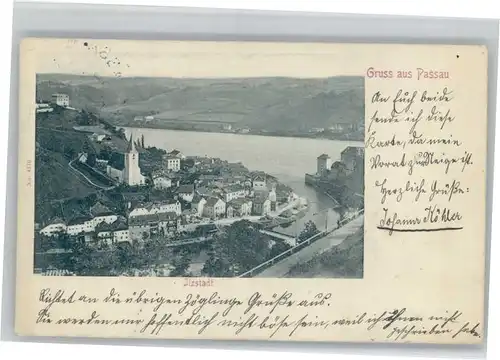 Gruss aus Passau
An Euch beide
sende ich diese
Karte, da mein
Vorrat zur Neige ist.
Herzliche Grüße
Johanna Köhler
Ilzstadt
Richtet an die übrigen Zöglinge Grüße aus.
Sie werden mir hoffentlich nicht böse sein, weil ich Ihnen nicht
geschrieben habe.